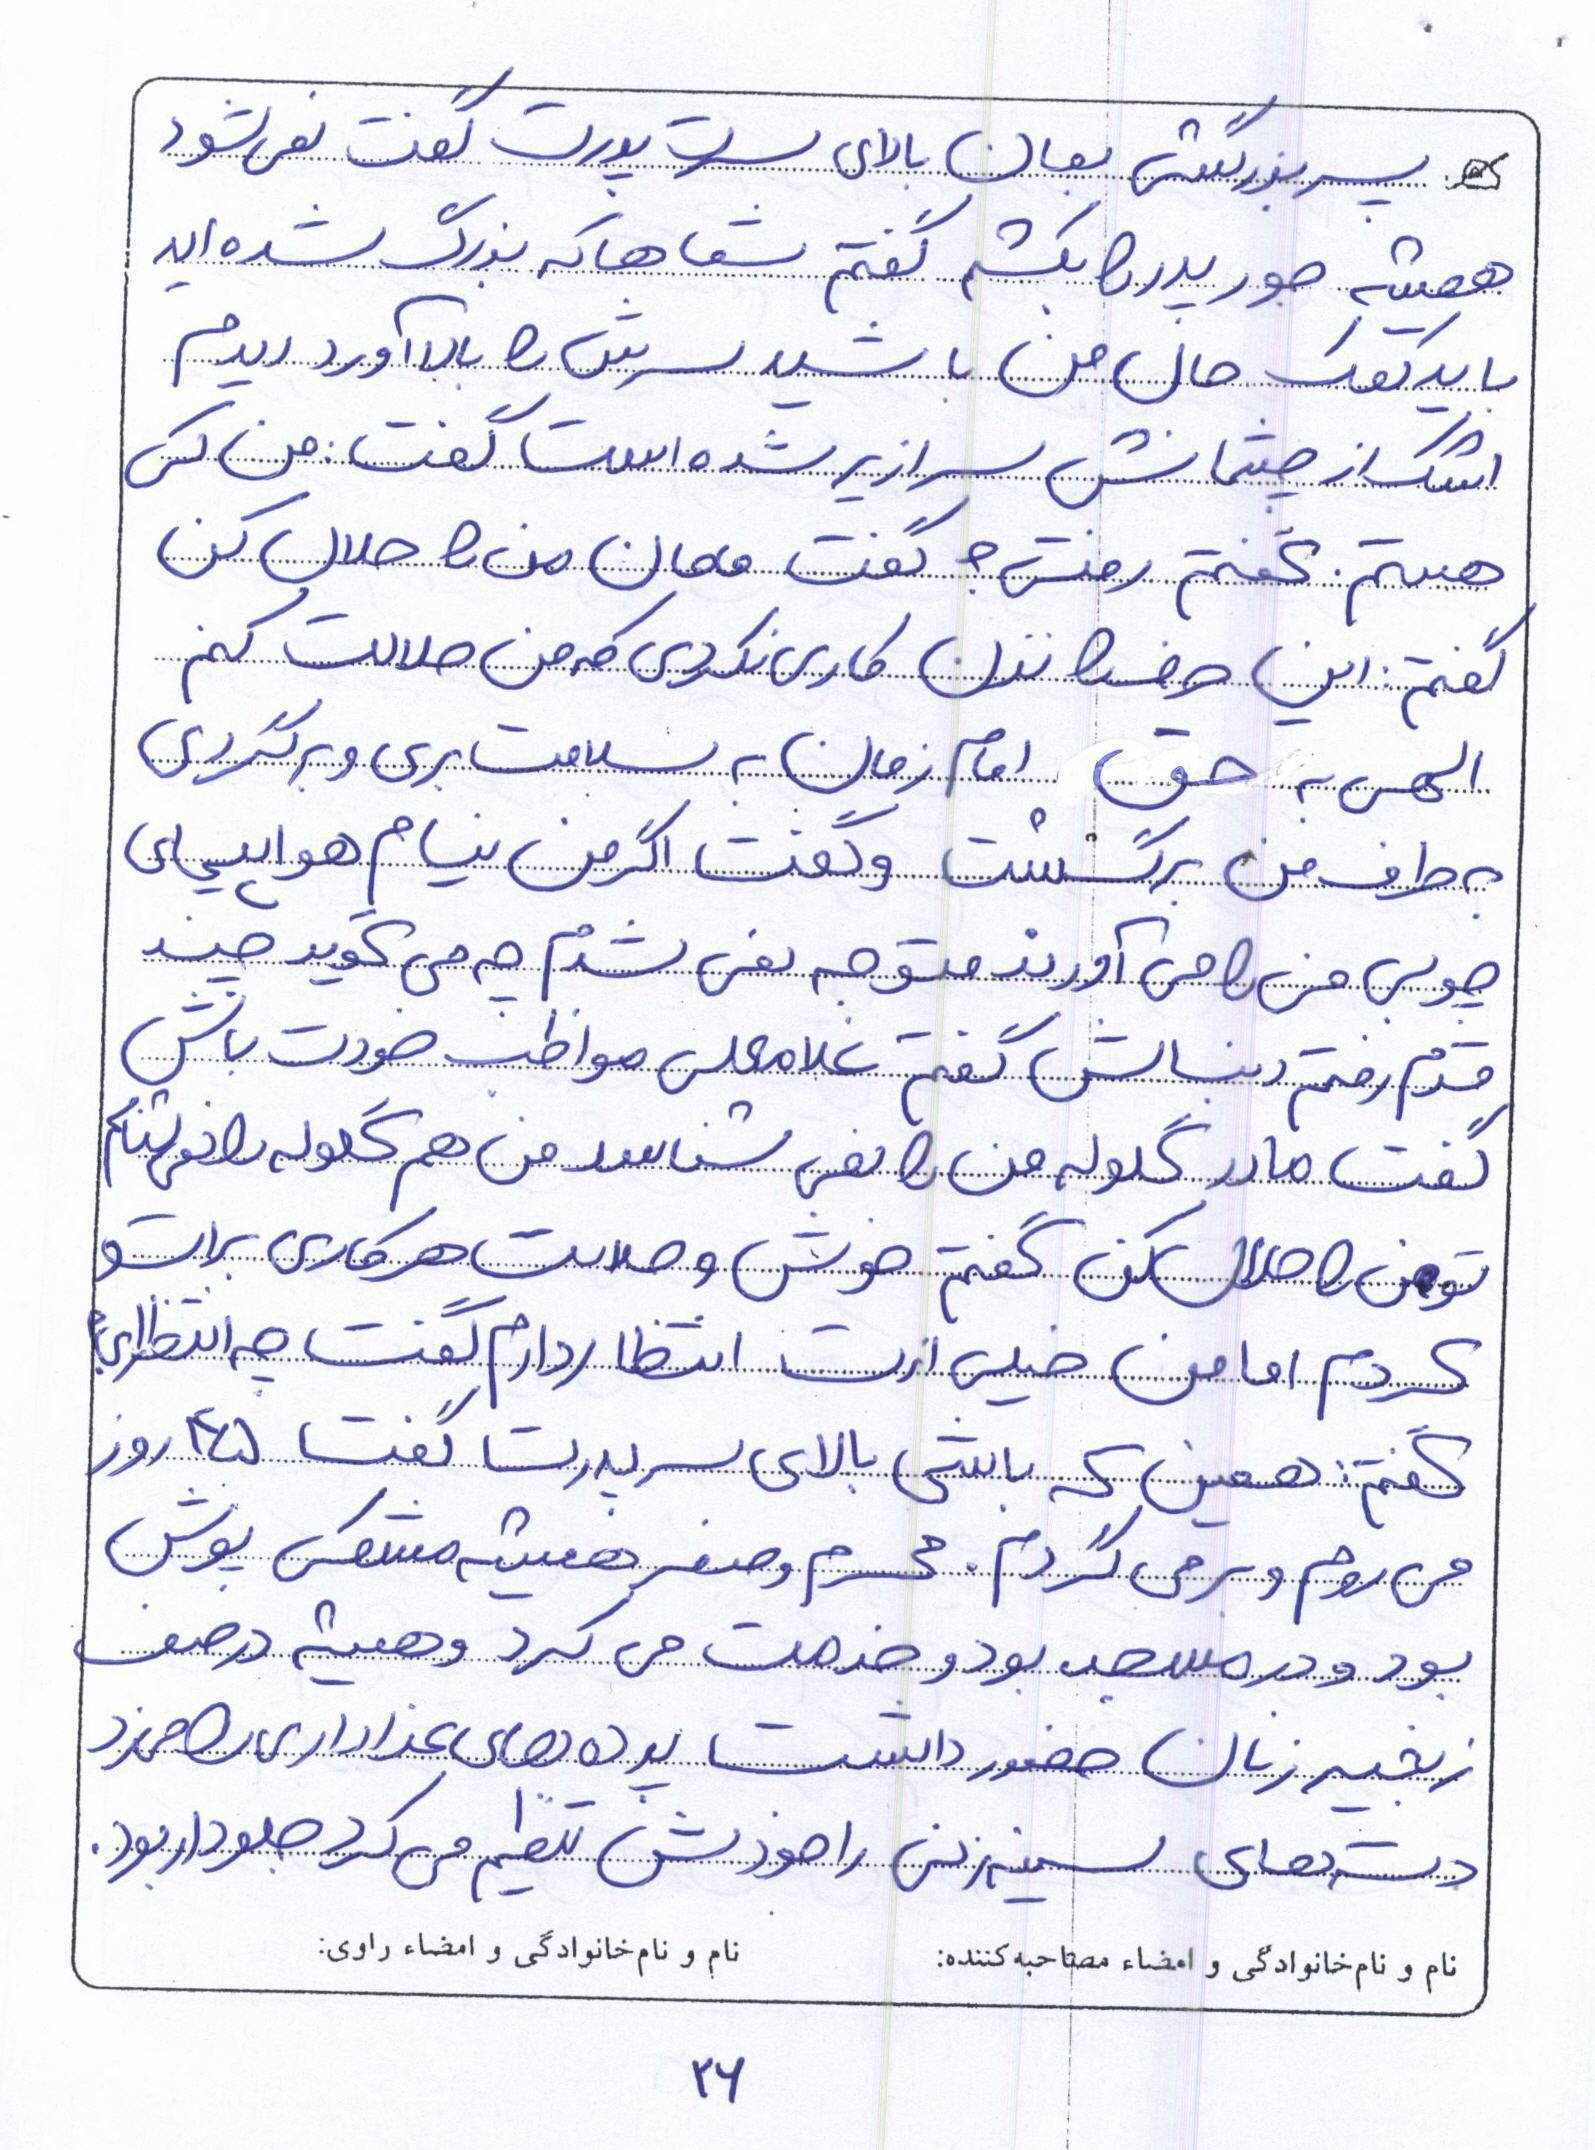 پسر بزرگش بمان بالای سر پدرت گفت نمی شود
همیشه جور پدر را بکشم گفتم شماها که بزرگ شده اید
باید کمک حال من باشید سرش را بالا آورد دیدم
اشک از چشمانش سرازیر شده است گفت: من کی
هستم. گفتم رفتی؟ گفت مامان من را حلال کن
گفتم: این حرف را نزن کاری نکردی که من حلالت کنم
الهی به حق امام زمان به سلامت بری و برگردی
به طرف من برگشت و گفت اگر من نیام هواپیمای
چوبی من را می آورند متوجه نمی شدم چه می گوید چند
قدم رفتم دنبالش گفتم غلامعلی مواظب خودت باش
گفت مادر گلوله من را نمی شناسد من هم گلوله را نمی شناسم
تو من را حلال کن گفتم خوش و حلالت هر کاری برات
کردم اما من خیلی ازت انتظار دارم گفت چه انتظاری؟
گفتم: همین که باشی بالای سر پدرت گفت ۴۵ روز
می روم و برمی گردم. محرم و صفر همیشه مشکی پوش
بود و در مسجد بود و خدمت می کرد و همیشه در صف
زنجیر زنان حضور داشت پرده های عزاداری را می زد
دسته های سینه زنی را خودش تنظیم می کرد جلودار بود.
نام و نام خانوادگی و امضاء مصاحبه کننده: نام و نام خانوادگی و امضاء راوی:
۲۶